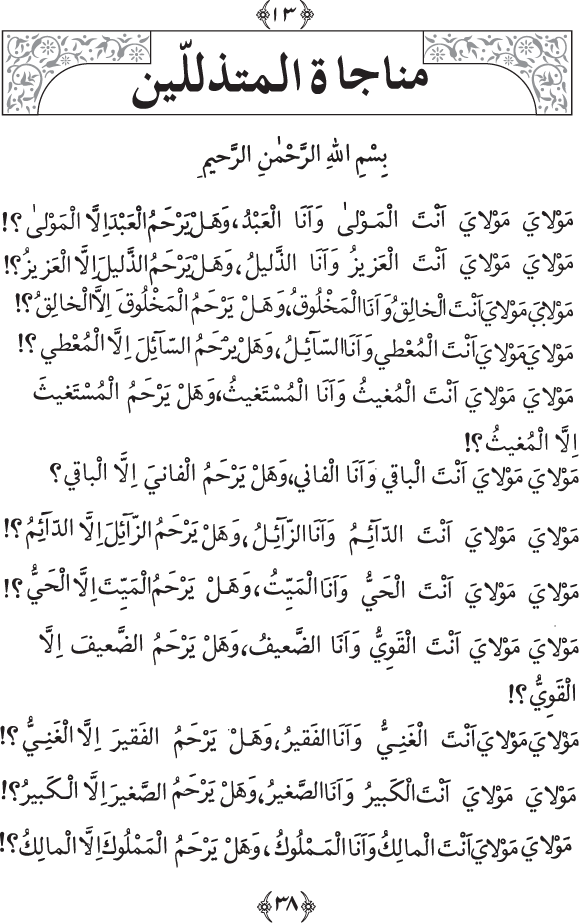 ﴿١٣﴾
مناجاة المتذللّين
بِسْمِ اللهِ الرَّحْمٰنِ الرَّحيمِ
مَوْلايَ مَوْلايَ اَنْتَ الْمَـوْلىٰ وَاَنَا الْعَبْدُ،وَهَـلْ يَرْحَمُ الْعَبْدَ اِلَّا الْمَوْلىٰ ؟!
مَوْلايَ مَوْلايَ اَنْتَ الْعَزيزُ وَاَنَا الذَّليلُ،وَهَـلْ يَرْحَمُ الذَّليلَ اِلَّا الْعَزيزُ؟!
مَوْلايَ مَوْلايَ اَنْتَ الْخالِقُ وَاَنَا الْمَخْلُوقُ،وَهَـلْ يَرْحَمُ الْمَخْلُوقَ اِلَّا الْخالِقُ؟!
مَوْلايَ مَوْلايَ اَنْتَ الْمُعْطي وَاَنَا السّآئِـلُ،وَهَلْ يَرْحَمُ السّآئِلَ اِلَّا الْمُعْطي ؟!
مَوْلايَ مَوْلايَ اَنْتَ الْمُغيثُ وَاَنَا الْمُسْتَغيثُ،وَهَلْ يَرْحَمُ الْمُسْتَغيثَ
اِلَّا الْمُغيثُ؟!
مَوْلايَ مَوْلايَ اَنْتَ الْباقي وَاَنَا الْفاني،وَهَلْ يَرْحَمُ الْفانيَ اِلَّا الْباقي؟
مَوْلايَ مَوْلايَ اَنْتَ الدّآئِـمُ وَاَنَا الزّآئِـلُ،وَهَلْ يَرْحَمُ الزّآئِلَ اِلَّا الدّآئِمُ؟!
مَوْلايَ مَوْلايَ اَنْتَ الْحَيُّ وَاَنَا الْمَيِّتُ،وَهَـلْ يَرْحَمُ الْمَيِّتَ اِلَّا الْحَيُّ؟!
مَوْلايَ مَوْلايَ اَنْتَ الْقَوِيُّ وَاَنَا الضَّعيفُ،وَهَلْ يَرْحَمُ الضَّعيفَ اِلَّا
الْقَوِيُّ؟!
مَوْلايَ مَوْلايَ اَنْتَ الْغَنِـيُّ وَاَنَا الْفَقيرُ،وَهَـلْ يَرْحَمُ الفَقيرَ اِلَّا الْغَنِـيُّ؟!
مَوْلايَ مَوْلايَ اَنْتَ الْكَبيرُ وَاَنَا الصَّغيرُ،وَهَلْ يَرْحَمُ الصَّغيرَ اِلَّا الْـكَبيرُ؟!
مَوْلايَ مَوْلايَ اَنْتَ الْمالِكُ وَاَنَا الْمَـمْلُوكُ،وَهَلْ يَرْحَمُ الْمَمْلُوكَ اِلَّا الْمالِكُ؟!
﴿٣٨﴾